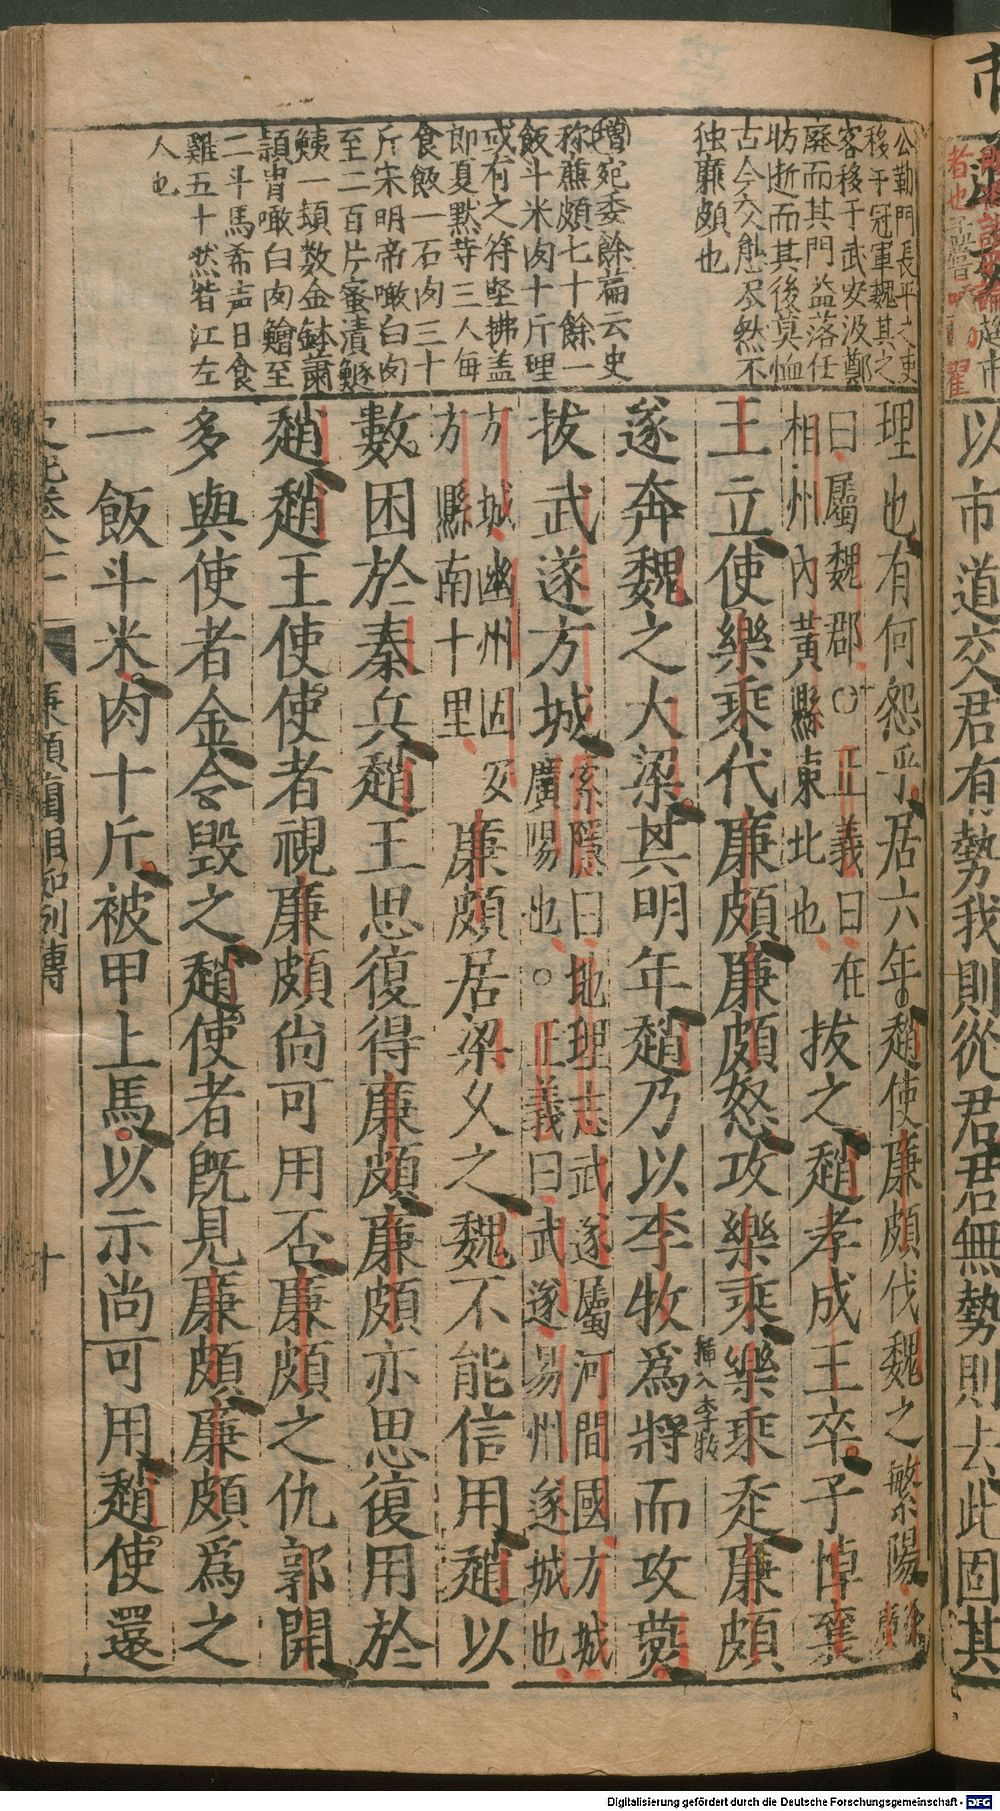 公勤門長平之吏
移于冠軍魏其之
客移于武安汲鄭
廢而其門益落任
昉逝而其後莫恤
古今交態尽然不
独廉頗也
增宛委餘篇云史
称廉頗七十餘一
飯斗米肉十斤理
或有之符堅拂盖
郎夏默等三人每
食飯一石肉三十
斤宋明帝噉白肉
至二百片蜜漬鱁
鮧一頓数金鉢蕭
頴胄噉白肉鱠至
二斗馬希声日食
雞五十然皆江左
人也
理也有何怨乎居六年趙使廉頗伐魏之繁陽
曰屬魏郡〇正義曰在
相州內黃縣東北也
拔之趙孝成王卒子悼襄
王立使樂乘代廉頗廉頗怒攻樂乘樂乘走廉頗
插入李牧
遂奔魏之大梁其明年趙乃以李牧爲將而攻燕
拔武遂方城
索隱曰地理志武遂屬河間國方城
廣陽也○正義曰武遂易州遂城也
方城幽州固安
方縣南十里
廉頗居梁乆之魏不能信用趙以
數困於秦兵趙王思復得廉頗廉頗亦思復用於
趙趙王使使者視廉頗尚可用否廉頗之仇郭開
多與使者金令毀之趙使者既見廉頗廉頗爲之
一飯斗米肉十斤被甲上馬以示尚可用趙使還
廉頗藺相如列傳
十
以市道交君有勢我則從君君無勢則去此固其
Digitalisierung gefördert durch die Deutsche Forschungsgemeinschaft - DFG